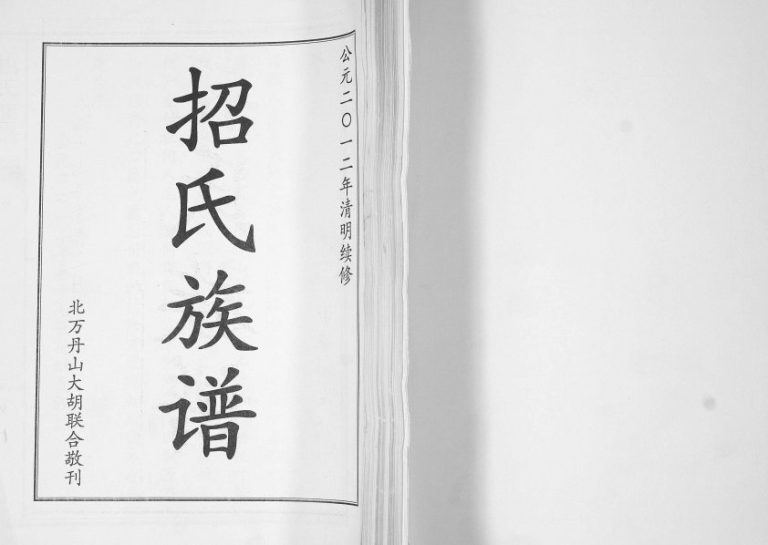 公元二〇一二年清明续修
招氏族谱
北万丹山大胡联合敬刊